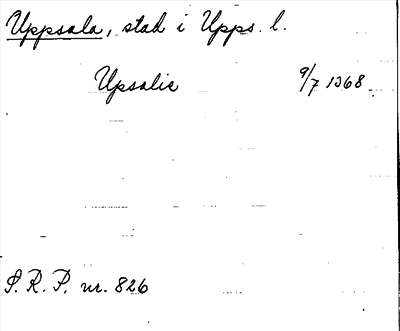 Uppsala, stad i Upps. l.
Upsalie 9/7 1368
S. R. P. nr. 826